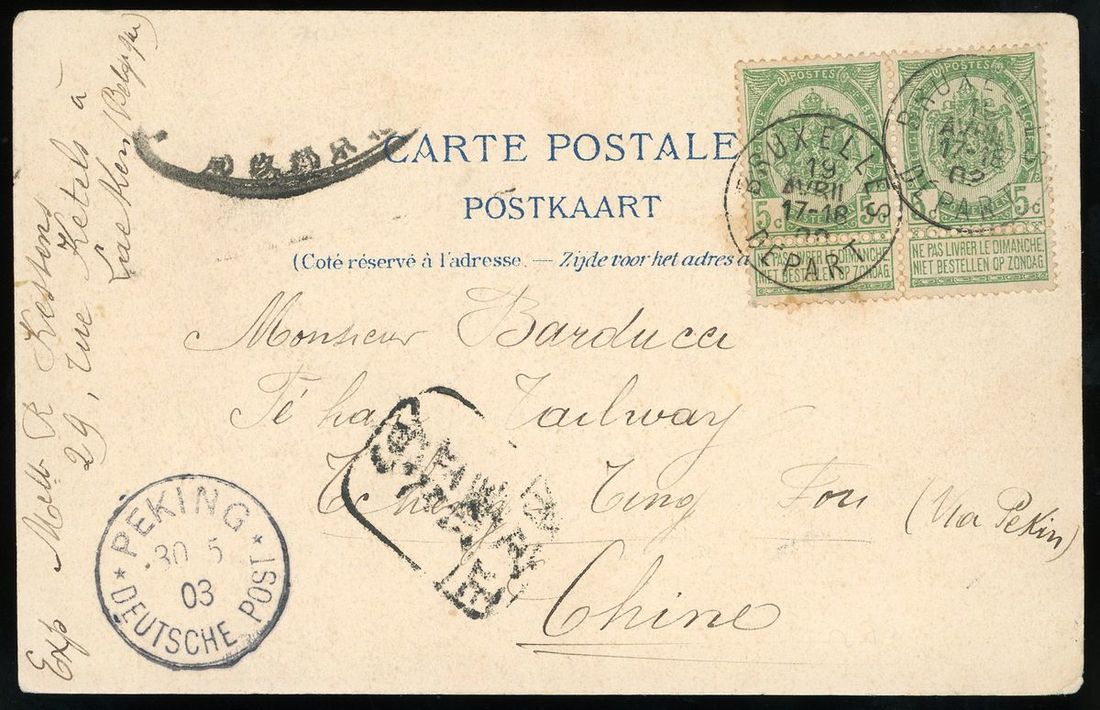 CARTE POSTALE
POSTKAART
(Coté réservé à l'adresse. — Zijde voor het adres
POSTES
5c 5c
NE PAS LIVRER LE DIMANCHE
NIET BESTELLEN OP ZONDAG
POSTES
5c 5c
NE PAS LIVRER LE DIMANCHE
NIET BESTELLEN OP ZONDAG
BRUXELLES
19
AVRIL
17-18
DEPART
BRUXELLES
AVRIL
17-18
DEPART
Monsieur Barducci
Railway
Ting Fou (Via Pekin)
Chine
Exp Kestens
29, rue Ketels à
Laeken (Belgique)
PEKING
30 5
03
DEUTSCHE POST